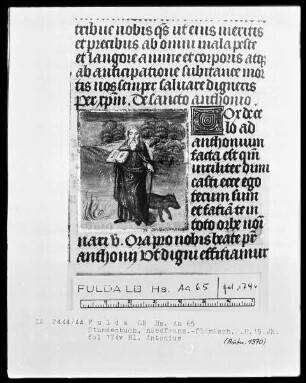 tribue nobis q̃s ut eius meritis
et precibus ab omni mala peste
et langore anime et corporis atqȝ
ab anticipatione subitanee mor
tis nos semper saluare digneris
Per xp̃m. De sancto anthonio.
Vox de ce
lo ad
anthonium
facta est qm̃
uiriliter dimi
casti ecce ego
tecum sum
et faciã te in
toto orbe no
nari v̄. Ora pro nobis beate pr̃
anthonij Ut digni efficiamur
FULDA LB Hs. Aa 65 fol. 174v
Fulda LB Hs. Aa 65
Stundenbuch, nordfranz.-flämisch,
fol 174v Hl. Antonius
(Aufn. 1970)